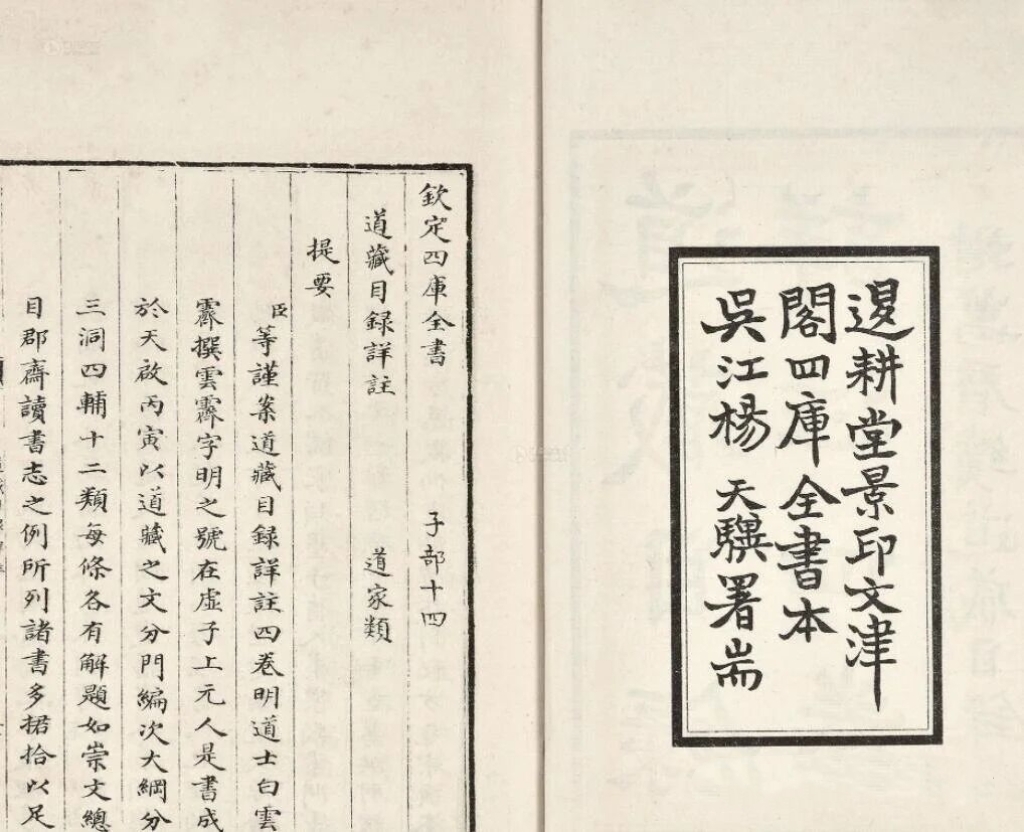 邊耕堂景印文津
閣四庫全書本
吳江楊天驥署耑
欽定四庫全書 子部十四
道藏目録詳註 道家類
提要
臣等謹案道藏目録詳註四卷明道士白雲
霽撰雲霽字明之號在虛子上元人是書成
於天啟丙寅以道藏之文分門編次大綱分
三洞四輔十二類每條各有解題如崇文總
目郡齋讀書志之例所列諸書多捃拾以足